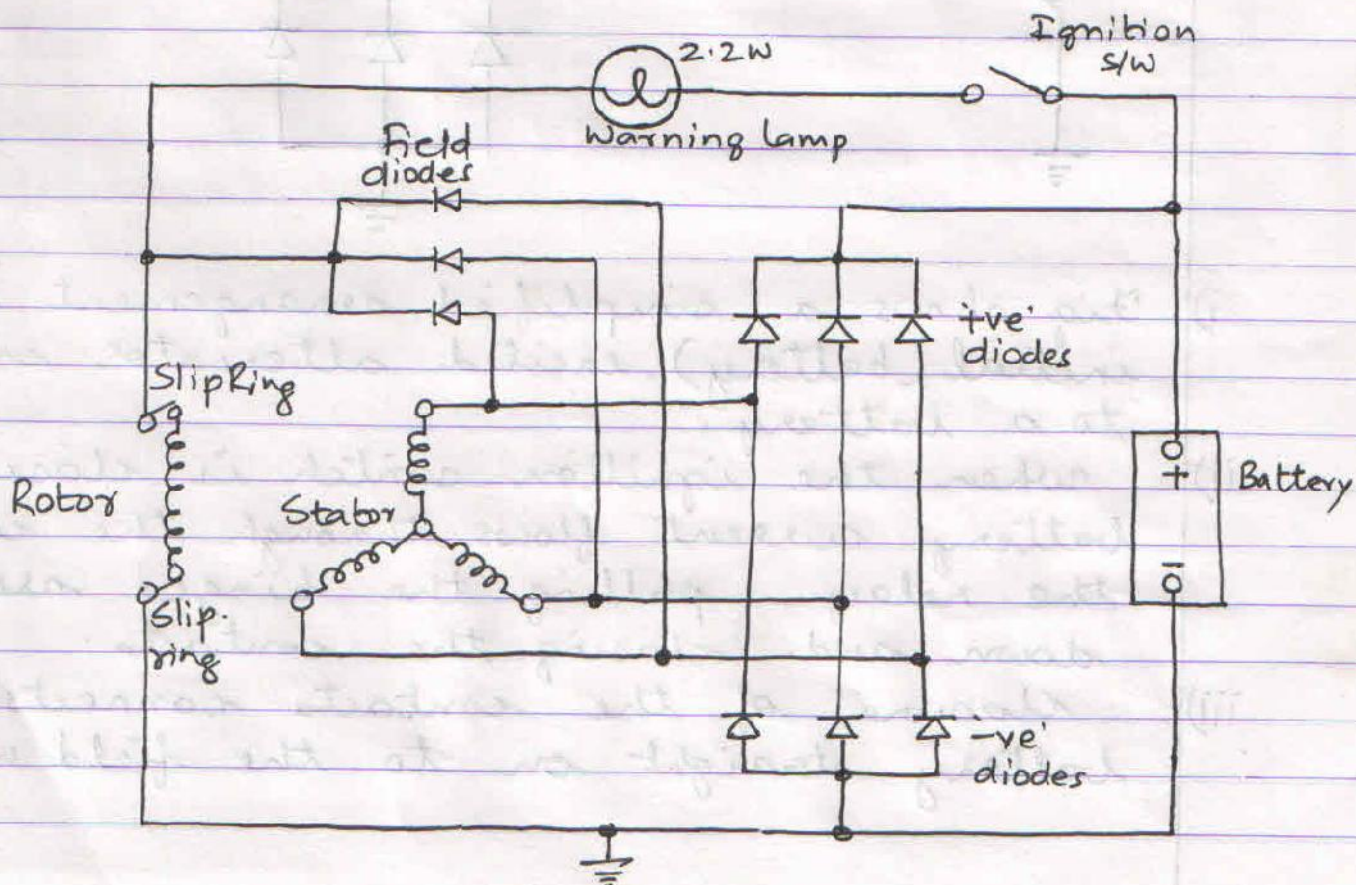 2.2W
Ignition
S/W
Warning lamp
Field
diodes
+ve'
diodes
SlipRing
Rotor
Stator
+
Battery
-
Slip.
ring
-ve'
diodes